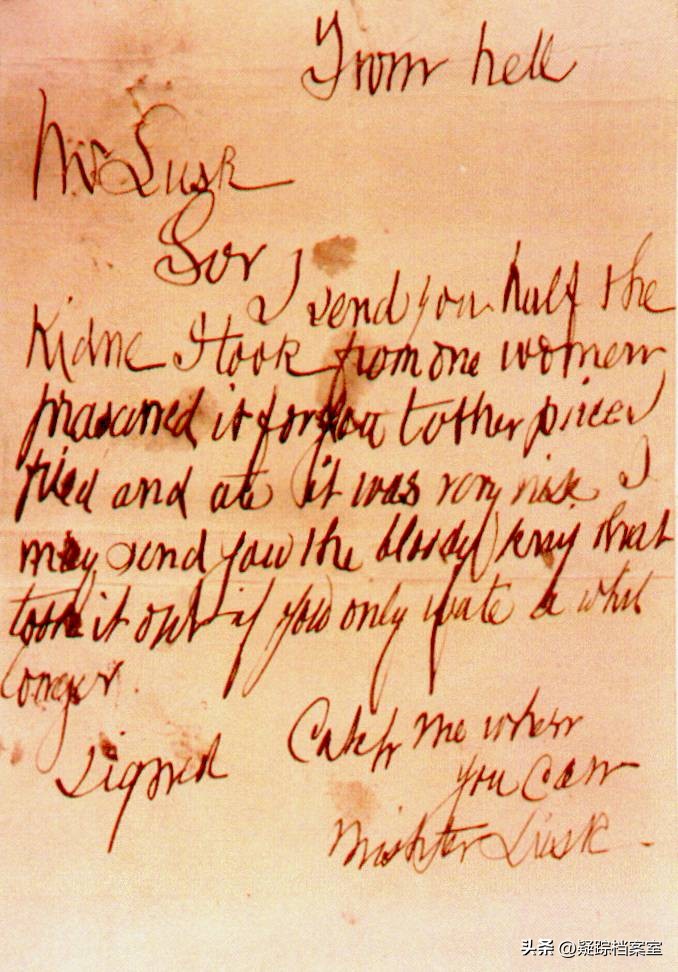 From hell
Mr Lusk
Sor
I send you half the
Kidne I took from one women
prasarved it for you tother piece I
fried and ate it was very nise I
may send you the bloody knif that
took it out if you only wate a whil
longer.
signed Catch me when
you Can
Mishter Lusk -
头条 @疑踪档案室